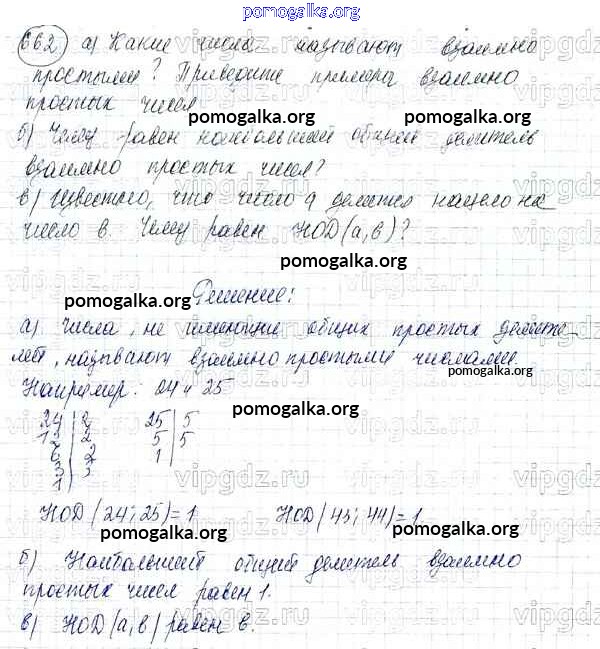 pomogalka.org
662 а) Какие числа называют взаимно
простыми? Приведите примеры взаимно
простых чисел.
pomogalka.org
pomogalka.org
б) Чему равен наибольший общий делитель
взаимно простых чисел?
в) Известно, что число а делится нацело на
число в. Чему равен НОД(а,в)?
pomogalka.org
Решение:
pomogalka.org
а) Числа, не имеющие общих простых делите-
лей, называют взаимно простыми числами.
pomogalka.org
Например: 24 и 25
pomogalka.org
24 | 2 25 | 5
12 | 2 5 | 5
6 | 2 1 |
3 | 3
1 |
НОД(24; 25) = 1 НОД(43; 44) = 1
pomogalka.org
pomogalka.org
б) Наибольший общий делитель взаимно
простых чисел равен 1.
pomogalka.org
в) НОД(а,в) равен в.
pomogalka.org